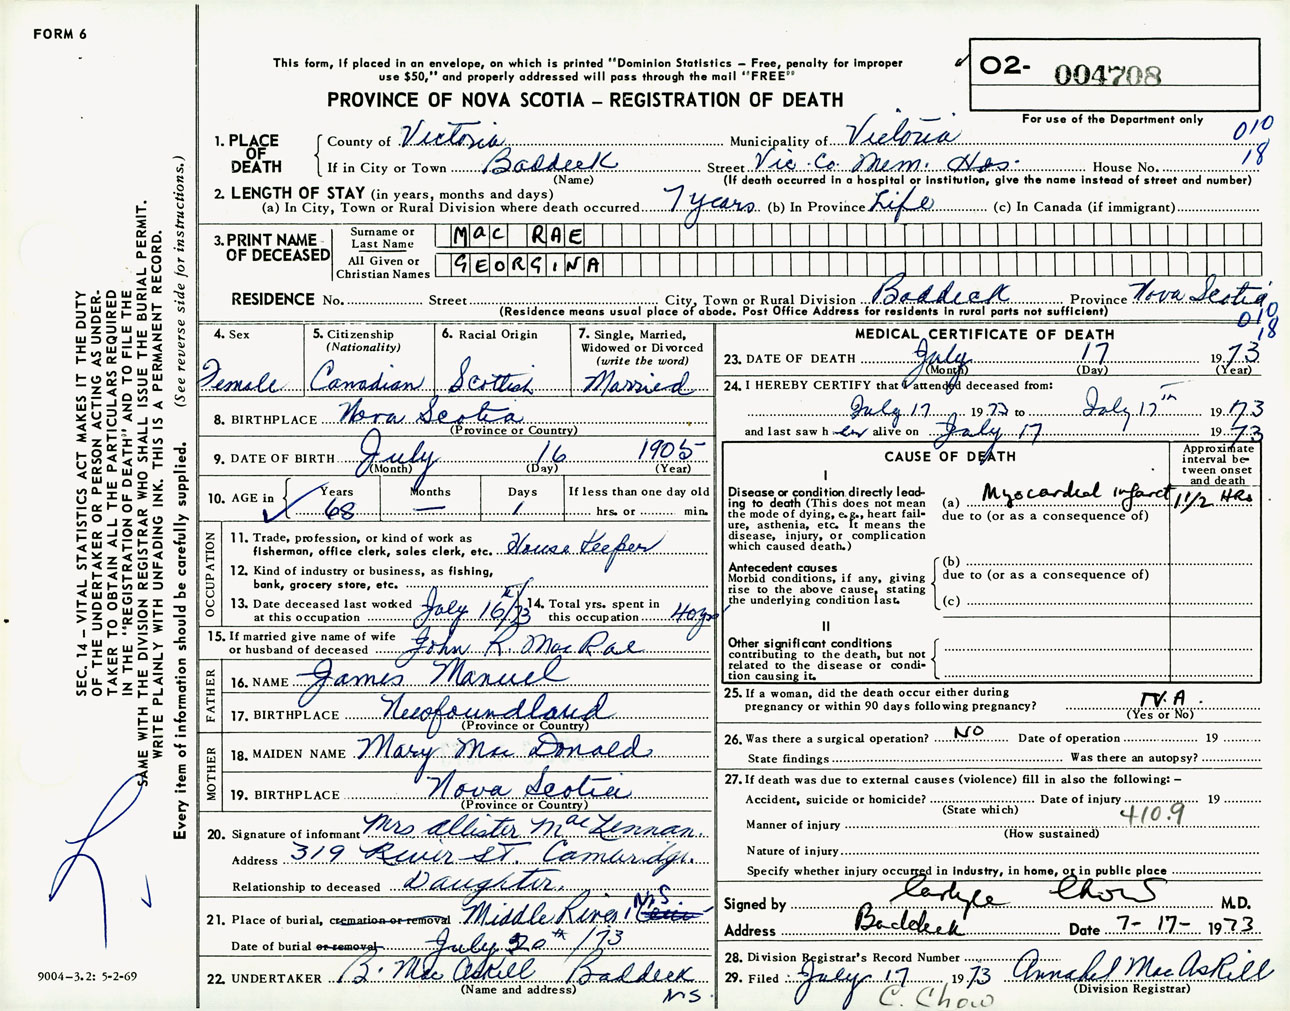 FORM 6
This form, if placed in an envelope, on which is printed "Dominion Statistics – Free, penalty for improper
use $50," and properly addressed will pass through the mail "FREE"
PROVINCE OF NOVA SCOTIA – REGISTRATION OF DEATH
O2- 004708
For use of the Department only
010
18
1. PLACE OF DEATH County of Victoria Municipality of Victoria
If in City or Town Baddeck Street Vic. Co. Mem. Hos. House No.
(Name) (If death occurred in a hospital or institution, give the name instead of street and number)
2. LENGTH OF STAY (in years, months and days)
(a) In City, Town or Rural Division where death occurred 7 years (b) In Province Life (c) In Canada (if immigrant)
3. PRINT NAME OF DECEASED
Surname or Last Name Mac RAE
All Given or Christian Names GEORGINA
RESIDENCE No. Street City, Town or Rural Division Baddeck Province Nova Scotia
(Residence means usual place of abode. Post Office Address for residents in rural parts not sufficient)
010
18
4. Sex
Female
5. Citizenship
(Nationality)
Canadian
6. Racial Origin
Scottish
7. Single, Married,
Widowed or Divorced
(write the word)
Married
8. BIRTHPLACE Nova Scotia
(Province or Country)
9. DATE OF BIRTH July 16 1905
(Month) (Day) (Year)
10. AGE in Years Months Days If less than one day old
68 — 1 hrs. or min.
OCCUPATION
11. Trade, profession, or kind of work as
fisherman, office clerk, sales clerk, etc. House Keeper
12. Kind of industry or business, as fishing,
bank, grocery store, etc.
13. Date deceased last worked
at this occupation July 16th/73
14. Total yrs. spent in
this occupation 40 yrs
15. If married give name of wife
or husband of deceased John R. MacRae
FATHER
16. NAME James Manuel
17. BIRTHPLACE Newfoundland
(Province or Country)
MOTHER
18. MAIDEN NAME Mary Mac Donald
19. BIRTHPLACE Nova Scotia
(Province or Country)
20. Signature of informant Mrs Allister MacLennan.
Address 319 River St. Cambridge.
Relationship to deceased Daughter.
21. Place of burial, cremation or removal Middle River N.S
Date of burial or removal July 20th/73
22. UNDERTAKER B. Mac Askill Baddeck
(Name and address) N.S.
MEDICAL CERTIFICATE OF DEATH
23. DATE OF DEATH July 17 1973
(Month) (Day) (Year)
24. I HEREBY CERTIFY that I attended deceased from:
July 17 1973 to July 17th 1973
and last saw her alive on July 17 1973
CAUSE OF DEATH
Approximate
interval be-
tween onset
and death
I
Disease or condition directly lead-
ing to death (This does not mean
the mode of dying, e.g., heart fail-
ure, asthenia, etc. It means the
disease, injury, or complication
which caused death.)
(a) Myocardial infarct 1 1/2 HRs
due to (or as a consequence of)
Antecedent causes
Morbid conditions, if any, giving
rise to the above cause, stating
the underlying condition last.
(b)
due to (or as a consequence of)
(c)
II
Other significant conditions
contributing to the death, but not
related to the disease or condi-
tion causing it.
25. If a woman, did the death occur either during
pregnancy or within 90 days following pregnancy? N.A.
(Yes or No)
26. Was there a surgical operation? NO Date of operation 19
State findings Was there an autopsy?
27. If death was due to external causes (violence) fill in also the following: –
Accident, suicide or homicide? Date of injury 19
(State which)
410.9
Manner of injury
(How sustained)
Nature of injury
Specify whether injury occurred in industry, in home, or in public place
Signed by Carlyle Chow M.D.
Address Baddeck Date 7-17- 1973
28. Division Registrar's Record Number
29. Filed July 17 1973 Annabel MacAskill
(Division Registrar)
C. Chow
SEC. 14 – VITAL STATISTICS ACT MAKES IT THE DUTY
OF THE UNDERTAKER OR PERSON ACTING AS UNDER-
TAKER TO OBTAIN ALL THE PARTICULARS REQUIRED
IN THE "REGISTRATION OF DEATH" AND TO FILE THE
SAME WITH THE DIVISION REGISTRAR WHO SHALL ISSUE THE BURIAL PERMIT.
WRITE PLAINLY WITH UNFADING INK. THIS IS A PERMANENT RECORD.
Every item of information should be carefully supplied. (See reverse side for instructions.)
9004-3.2: 5-2-69